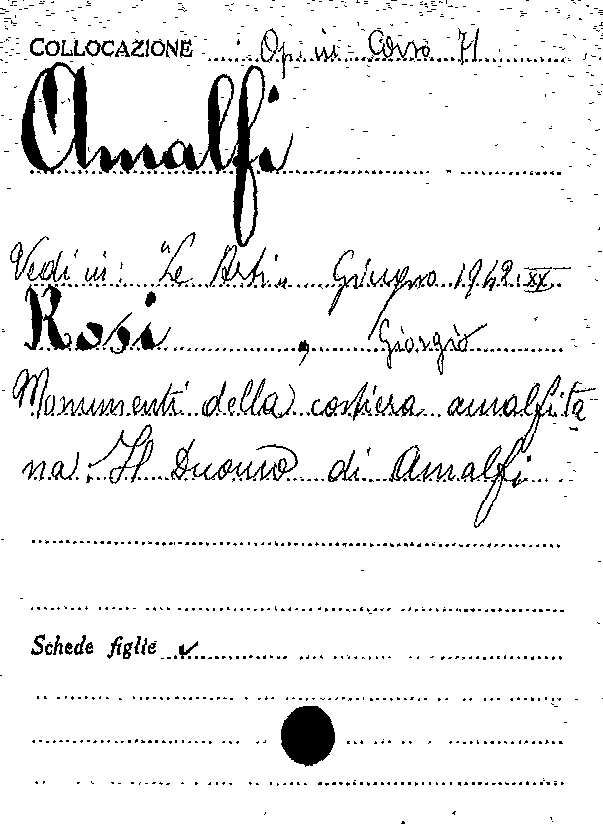 COLLOCAZIONE Op. in Corso 71
Amalfi
Vedi in: "Le Arti„ Giugno 1942.XX
Rosi , Giorgio
Monumenti della costiera amalfita
na. Il Duomo di Amalfi
Schede figlie ✓